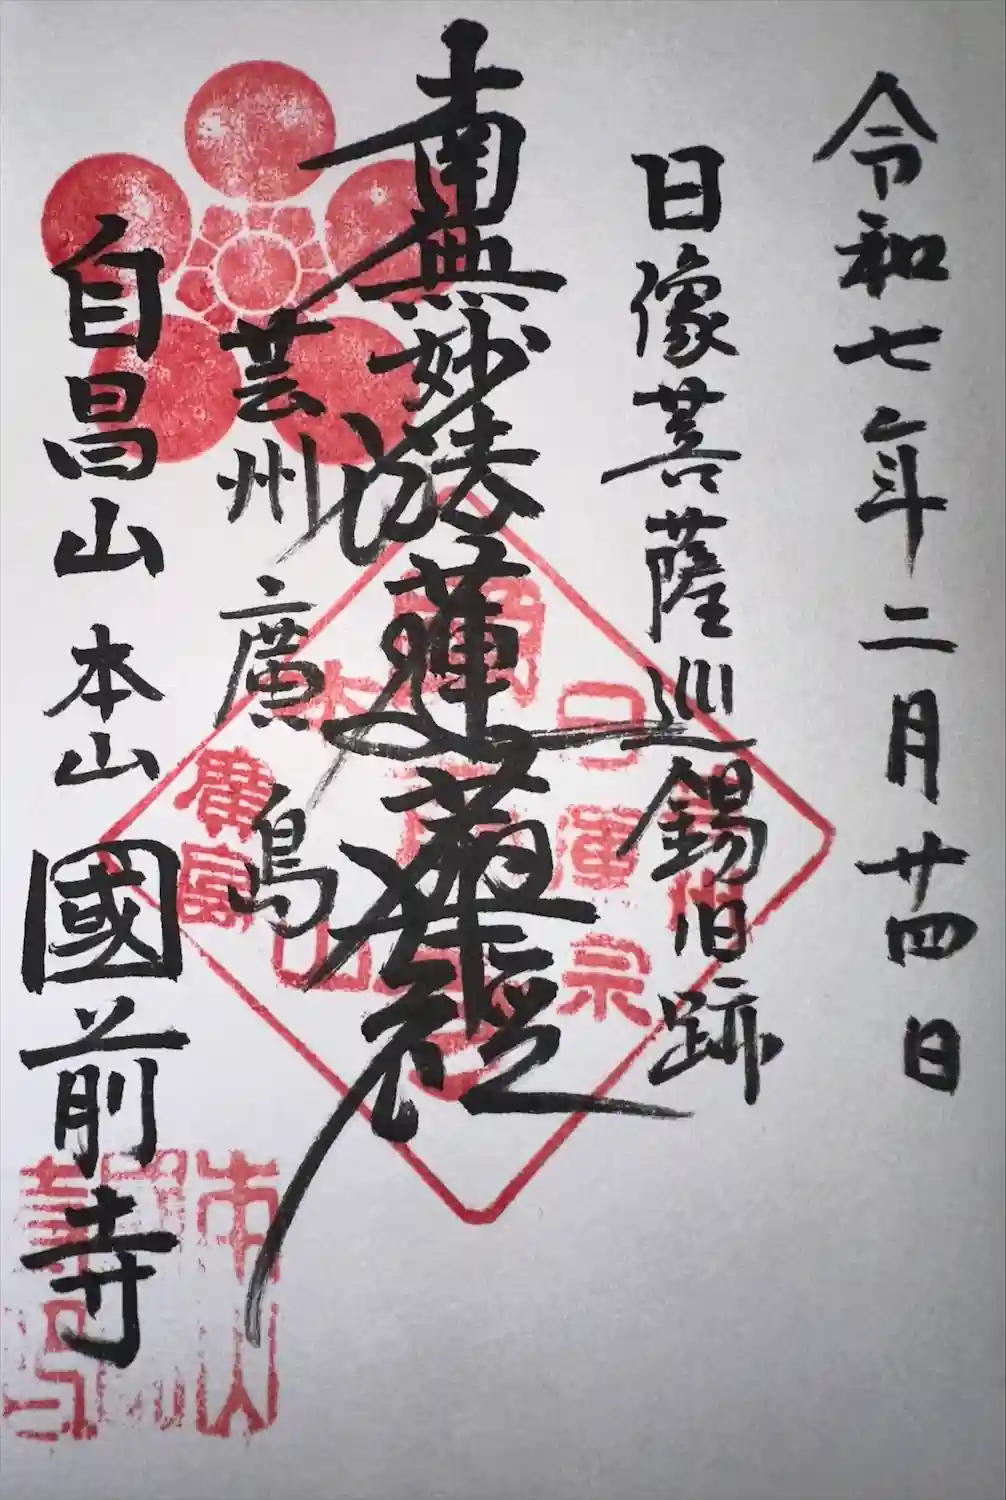 令和七年二月廿四日
日像菩薩巡錫旧跡
南無妙法蓮華経
芸州廣島
自昌山 本山 國前寺
日蓮宗
廣島
本山